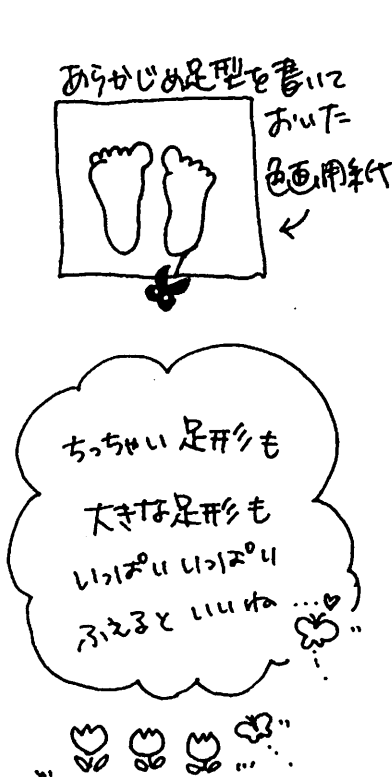 あらかじめ足型を書いて
おいた
色画用紙
ちっちゃい足形も
大きな足形も
いっぱいいっぱい
ふえるといいね…♡